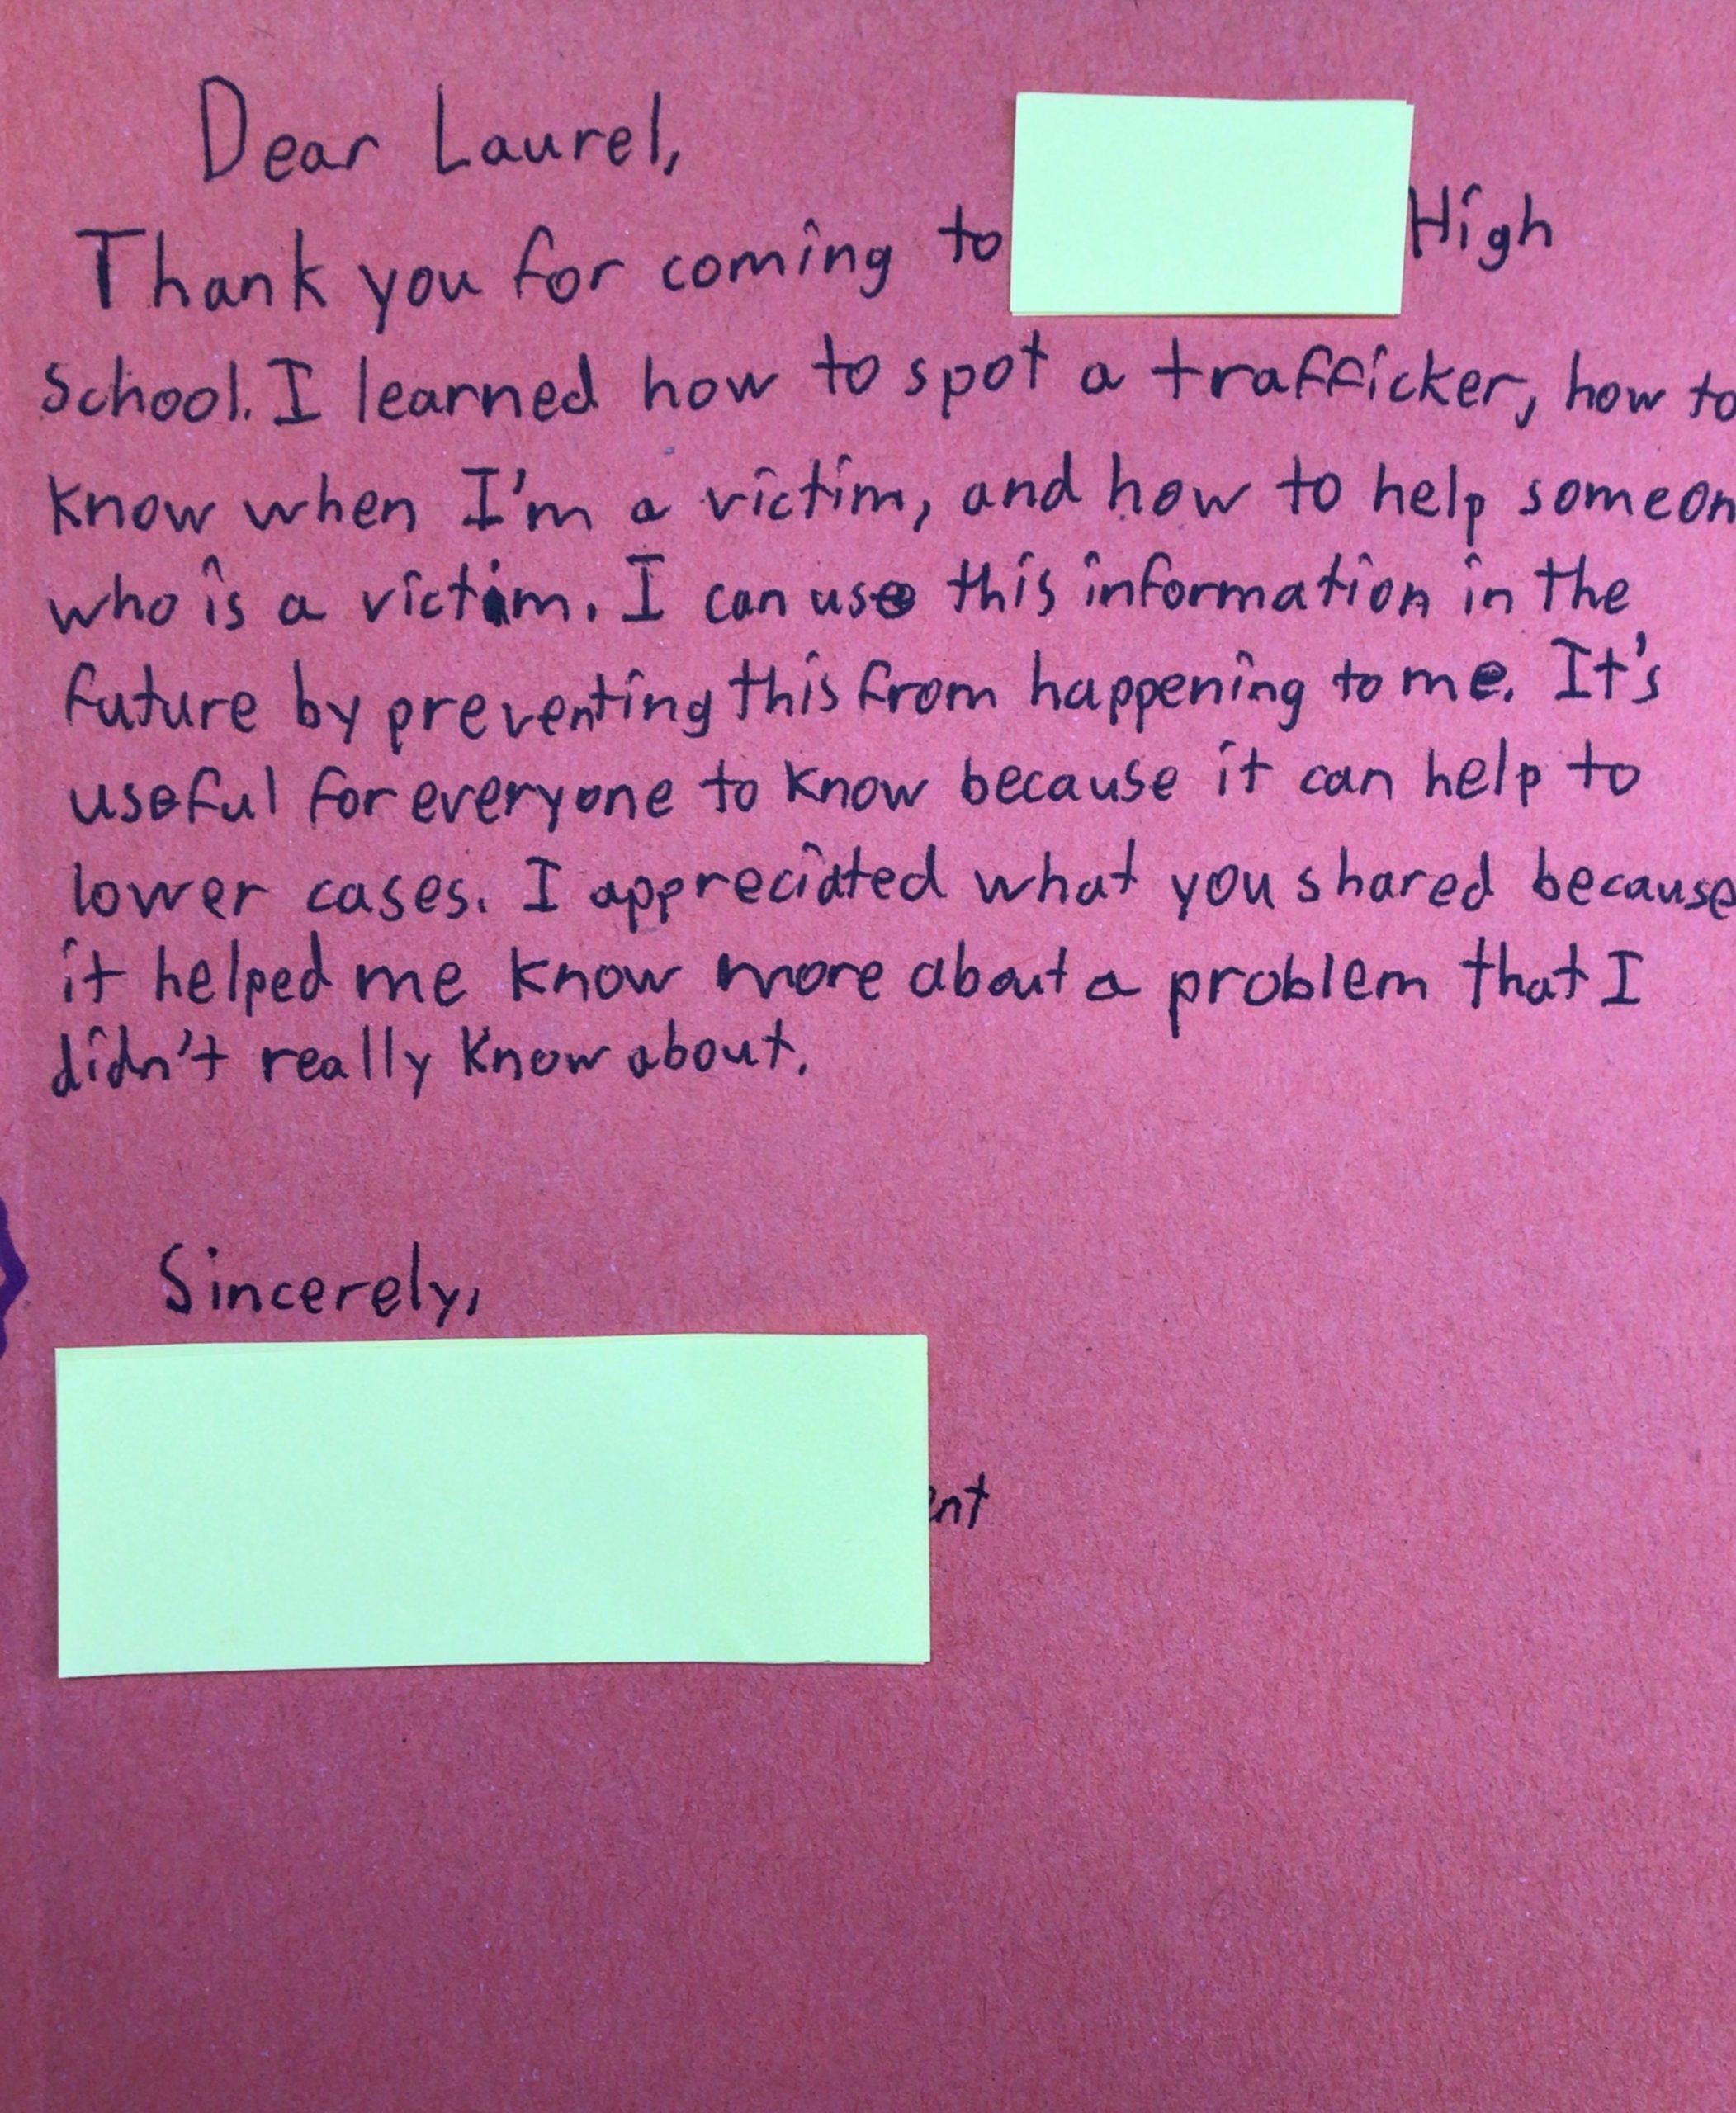 Dear Laurel,
Thank you for coming to High
School. I learned how to spot a trafficker, how to
know when I'm a victim, and how to help someon
who is a victim. I can use this information in the
future by preventing this from happening to me. It's
useful for everyone to know because it can help to
lower cases. I appreciated what you shared because
it helped me know more about a problem that I
didn't really know about.
Sincerely,
ent